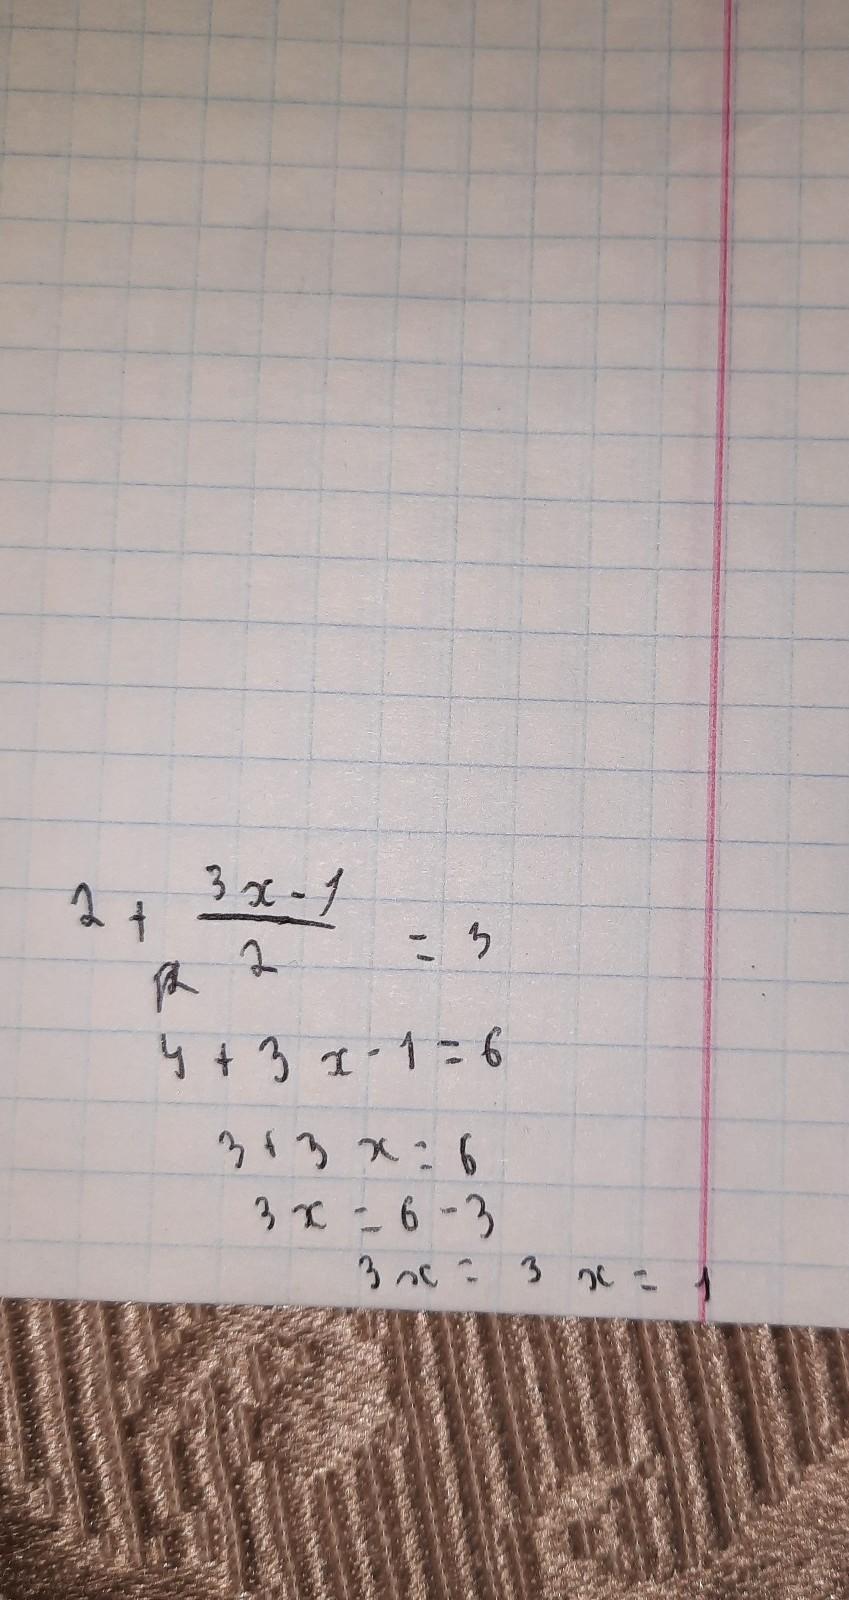 2 + \frac{3x-1}{2} = 3
4 + 3x - 1 = 6
3 + 3x = 6
3x = 6 - 3
3x = 3 x = 1